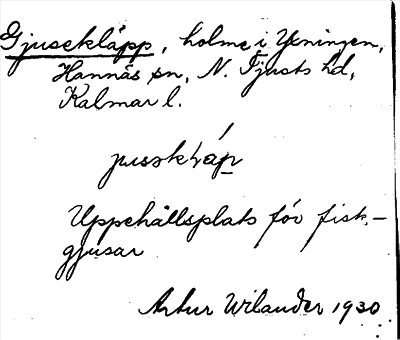 Gjusekläpp, holme i Yxningen,
Hannäs sn, N. Tjusts hd,
Kalmar l.
Uppehållsplats för fisk-
gjusar
Artur Wilander 1930